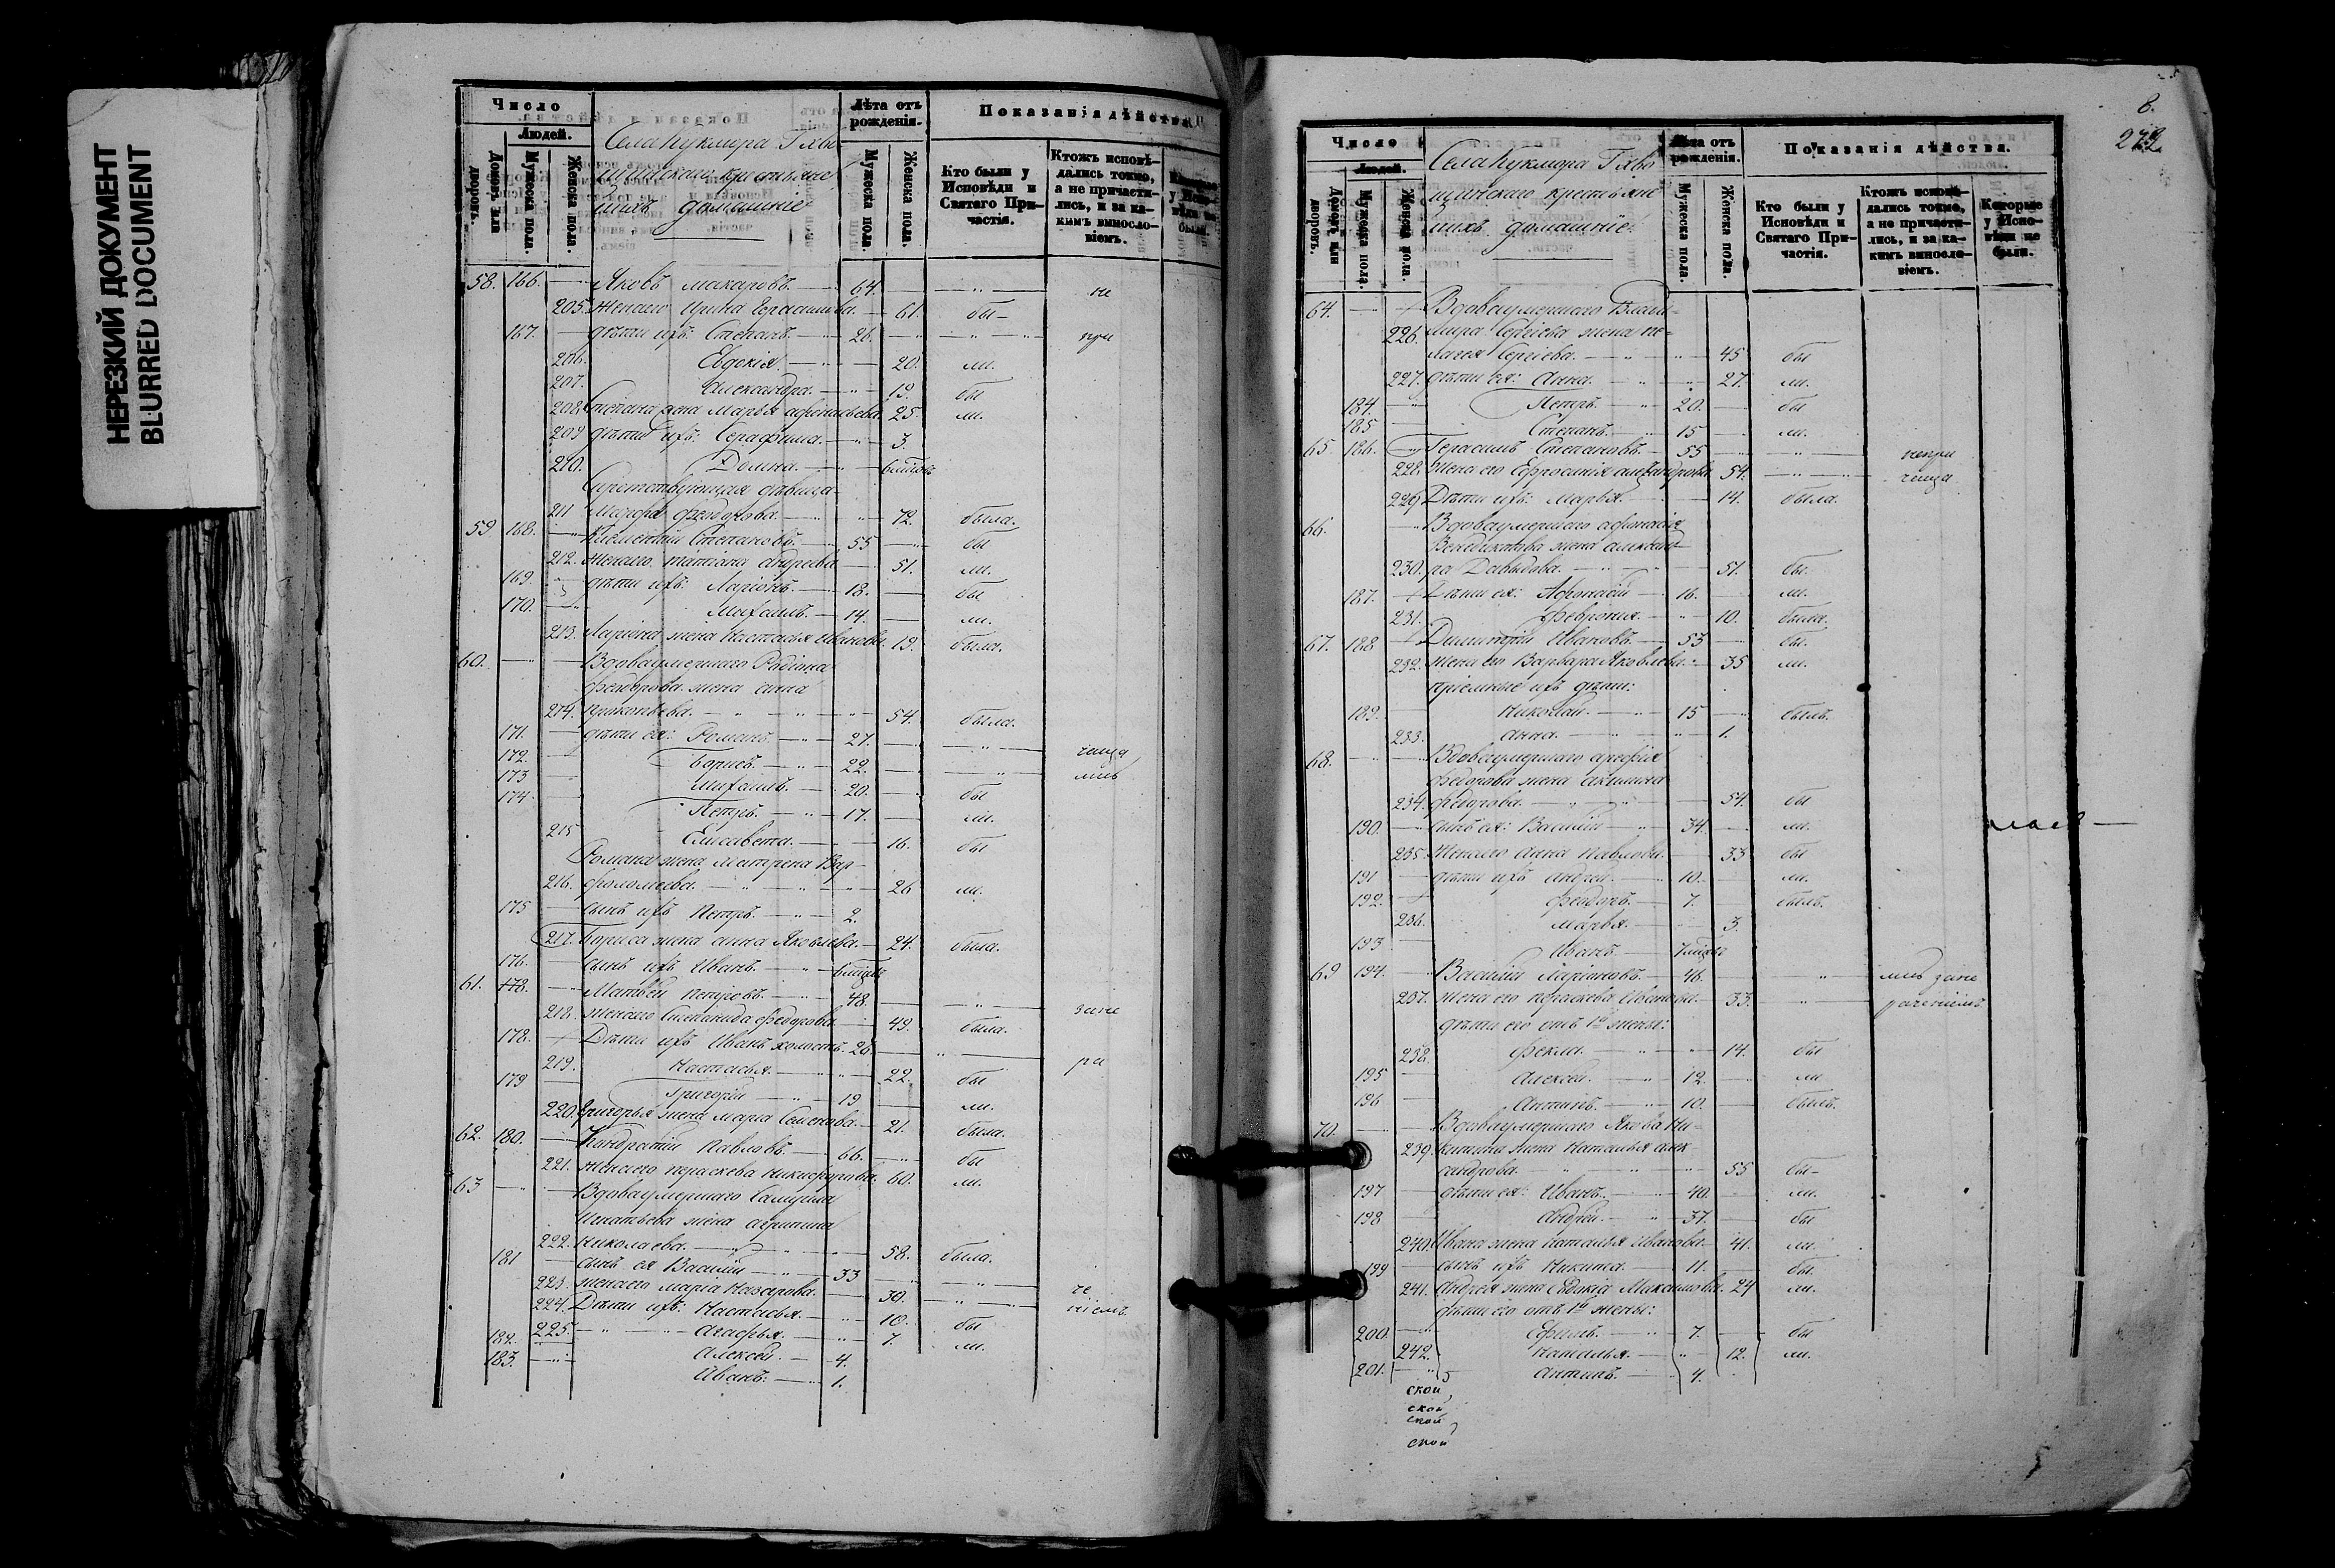 НЕРЕЗКИЙ ДОКУМЕНТ
BLURRED DOCUMENT
Число
Людей.
Домовъ или дворовъ.
Мужеска пола.
Женска пола.
Села Кукмора
крестьяне
ихъ домашніе
Лѣта отъ рожденія.
Мужеска пола.
Женска пола.
Показанія дѣйства
Кто были у Исповѣди и Святаго Причастія.
Ктожъ исповѣдались токмо, а не причастились, и за какимъ винословіемъ.
58. 166. Яковъ Макаровъ. 64. не
205. Жена его Ирина Герасимова. 61. бы-
167. дѣти ихъ: Степанъ. 26. при
206. Евдокія. 20. ли.
207. Александра. 19. бы
208. Степана жена Марья Афонасьева. 25 ли.
209 дѣти ихъ: Серафима. 3.
210. Домна.
дѣвица
211 Марфа Феодорова. 72. была.
59 168. Климентій Степановъ. 55 бы
212. Жена его Татіана Андреева 51. ли.
169. дѣти ихъ: Ларіонъ. 18. бы
170. Михаилъ. 14. ли.
213. Ларіона жена Настасья Иванова. 19. была.
60. Вдова умершаго Родіона
Феодорова жена Анна
214. Прокопьева. 54. была.
171. дѣти ея: Романъ. 27. чаща
172. Борисъ. 22. лись
173 Михаилъ. 20. бы
174. Петръ. 17. ли.
215 Елисавета. 16. бы
Романа жена Матрена Вар-
216. фоломеева. 26 ли.
175 сынъ ихъ Петръ. 2.
217. Бориса жена Анна Яковлева. 24. была.
176. сынъ ихъ Иванъ.
61. 178. Матвей Петровъ. 48. зане
218. жена его Степанида Федорова 49. была.
178. Дѣти ихъ Иванъ холостъ. 26. ра
219. Настасья. 22. бы
179 Григорій 19 ли.
220. Григорья жена Марія Семенова. 21. была.
62. 180. Кандратій Павловъ. 66. бы
221. Жена его Параскева Никифорова. 60. ли.
63 Вдова умершаго
Игнатьева жена Агрипина
222. Николаева. 58. была.
181 сынъ ея Василій 33
223. жена его Марія Назарова. 30. че
224. Дѣти ихъ: Настасья. 10. бы ніемъ.
225. Агафья. 7. ли.
182. Алексей. 4.
183. Иванъ. 1.
8.
272.
Число
Людей.
Домовъ или дворовъ.
Мужеска пола.
Женска пола.
Села Кукмора
крестьяне
ихъ домашніе.
Лѣта отъ рожденія.
Мужеска пола.
Женска пола.
Показанія дѣйства.
Кто были у Исповѣди и Святаго Причастія.
Ктожъ исповѣдались токмо, а не причастились, и за какимъ винословіемъ.
Которые у Исповѣди не были.
64. Вдова умершаго Влади-
226. мира Сергіева жена Пе-
лагея Сергіева. 45 бы
227. дѣти ея: Анна. 27. ли.
184. Петръ. 20. бы
185 Степанъ. 15 ли.
65 186. Герасимъ Степановъ. 55 непри
228. Жена его Ефросинія Александрова. 54. чаща
229 Дѣти ихъ: Марья. 14. была.
66. Вдова умершаго Афонасія
Венедиктова жена Александ-
230. ра Давыдова. 51. бы.
187. Дѣти ея: Афонасій 16. ли.
231. Феврония. 10. была.
67. 188 Димитрій Ивановъ. 53 бы.
232. Жена его Варвара Яковлева. 35 ли.
пріемные ихъ дѣти:
189. Николай. 15 былъ.
233. Анна. 1.
68. Вдова умершаго Арефія
Федорова жена Акилина
234. Федорова. 54. бы
190. сынъ ея: Василій 34. ли.
235. Жена его Анна Павлова. 33 бы
191 дѣти ихъ Андрей. 10. ли.
192. Феодоръ. 7. былъ.
236. Марья. 3.
193 Иванъ.
69 194. Василій Ларіоновъ. 46. лись зане
237. Жена его Параскева Иванова. 33. раченіемъ
дѣти его отъ 1й жены:
238. Фекла. 14. бы
195 Алексей. 12. ли
196 Антипъ. 10. былъ.
70. Вдова умершаго Якова Ни-
239. китина жена Наталья Алек
сандрова. 55 бы-
197 дѣти ея: Иванъ. 40. ли.
198 Андрей. 37. бы
240. Ивана жена Наталья Иванова 41. ли.
199 сынъ ихъ Никита. 11. бы
241. Андрея жена Евдокія Максимова. 24 ли.
дѣти его отъ 1й жены:
200. Ефимъ. 7. бы
242. Наталья. 12. ли.
201. Антипъ. 4.
ской
ской
ской
ской